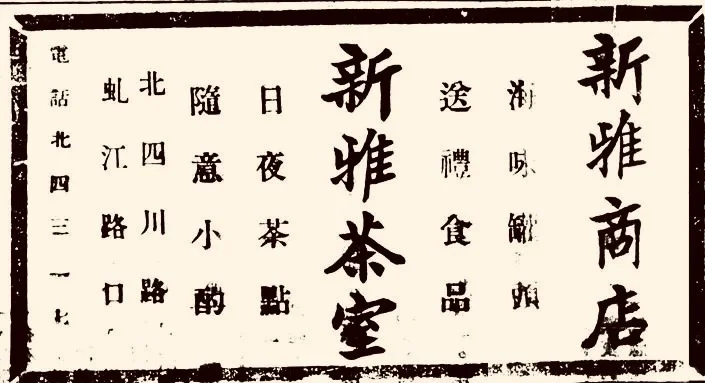 新雅商店
海味罐頭
送禮食品
新雅茶室
日夜茶點
隨意小酌
北四川路
虬江路口
電話北四三一七